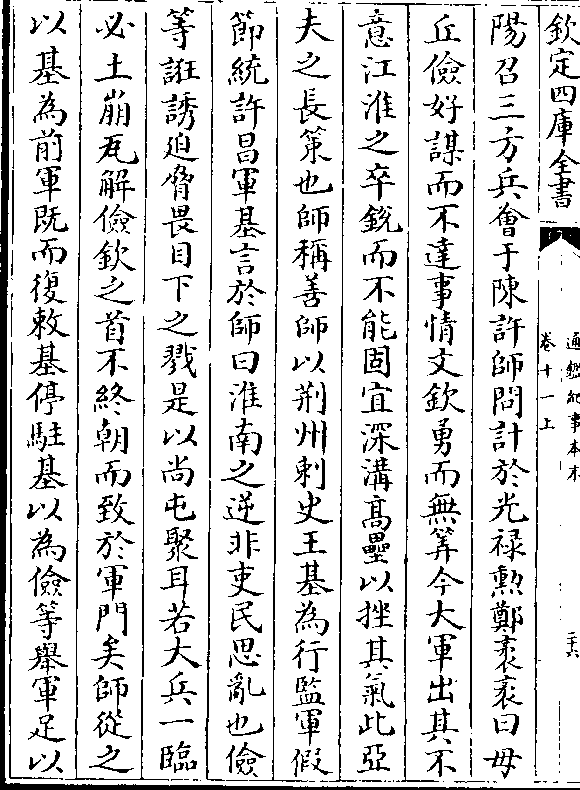 欽定四庫全書
通鑑紀事本末
卷十一上
二十六
陽召三方兵會于陳許師問計於光禄勲鄭袤袤曰毋
丘儉好謀而不達事情文欽勇而無筭今大軍出其不
意江淮之卒銳而不能固宜深溝髙壘以挫其氣此亞
夫之長策也師稱善師以荆州刺史王基為行監軍假
節統許昌軍基言於師曰淮南之逆非吏民思亂也儉
等誑誘迫脅畏目下之戮是以尚屯聚耳若大兵一臨
必土崩瓦解儉欽之首不終朝而致於軍門矣師從之
以基為前軍既而復敕基停駐基以為儉等舉軍足以